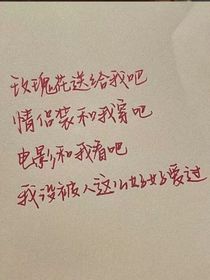 玫瑰花送给我吧
情侣装和我穿吧
电影和我看吧
我没被人这么好好爱过